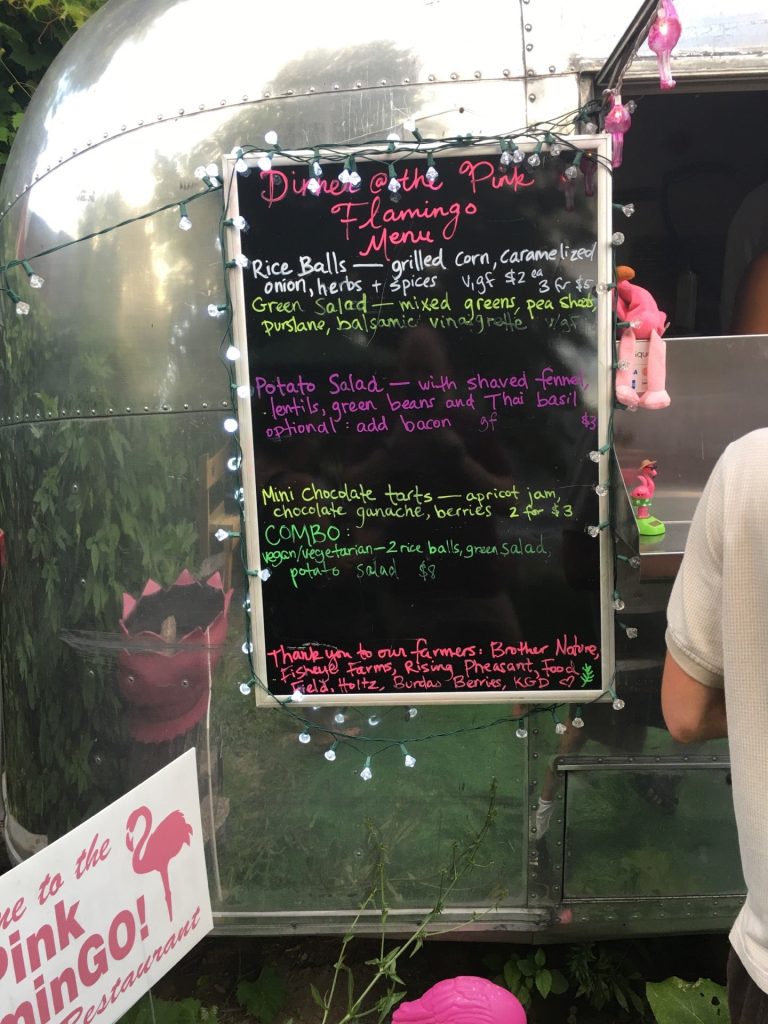 Dinner @ the Pink
Flamingo
Menu
Rice Balls — grilled corn, caramelized
onion, herbs + spices v,gf $2 ea 3 for $5
Green Salad — mixed greens, pea shoots,
purslane, balsamic vinaigrette v/gf
Potato Salad — with shaved fennel,
lentils, green beans and Thai basil
optional: add bacon gf $3
Mini Chocolate tarts — apricot jam,
chocolate ganache, berries 2 for $3
COMBO:
vegan/vegetarian — 2 rice balls, green salad,
potato salad $8
Thank you to our farmers: Brother Nature,
Fisheye Farms, Rising Pheasant, Food
Field, Holtz, Burdas Berries, KGD
me to the
Pink
minGO!
Restaurant